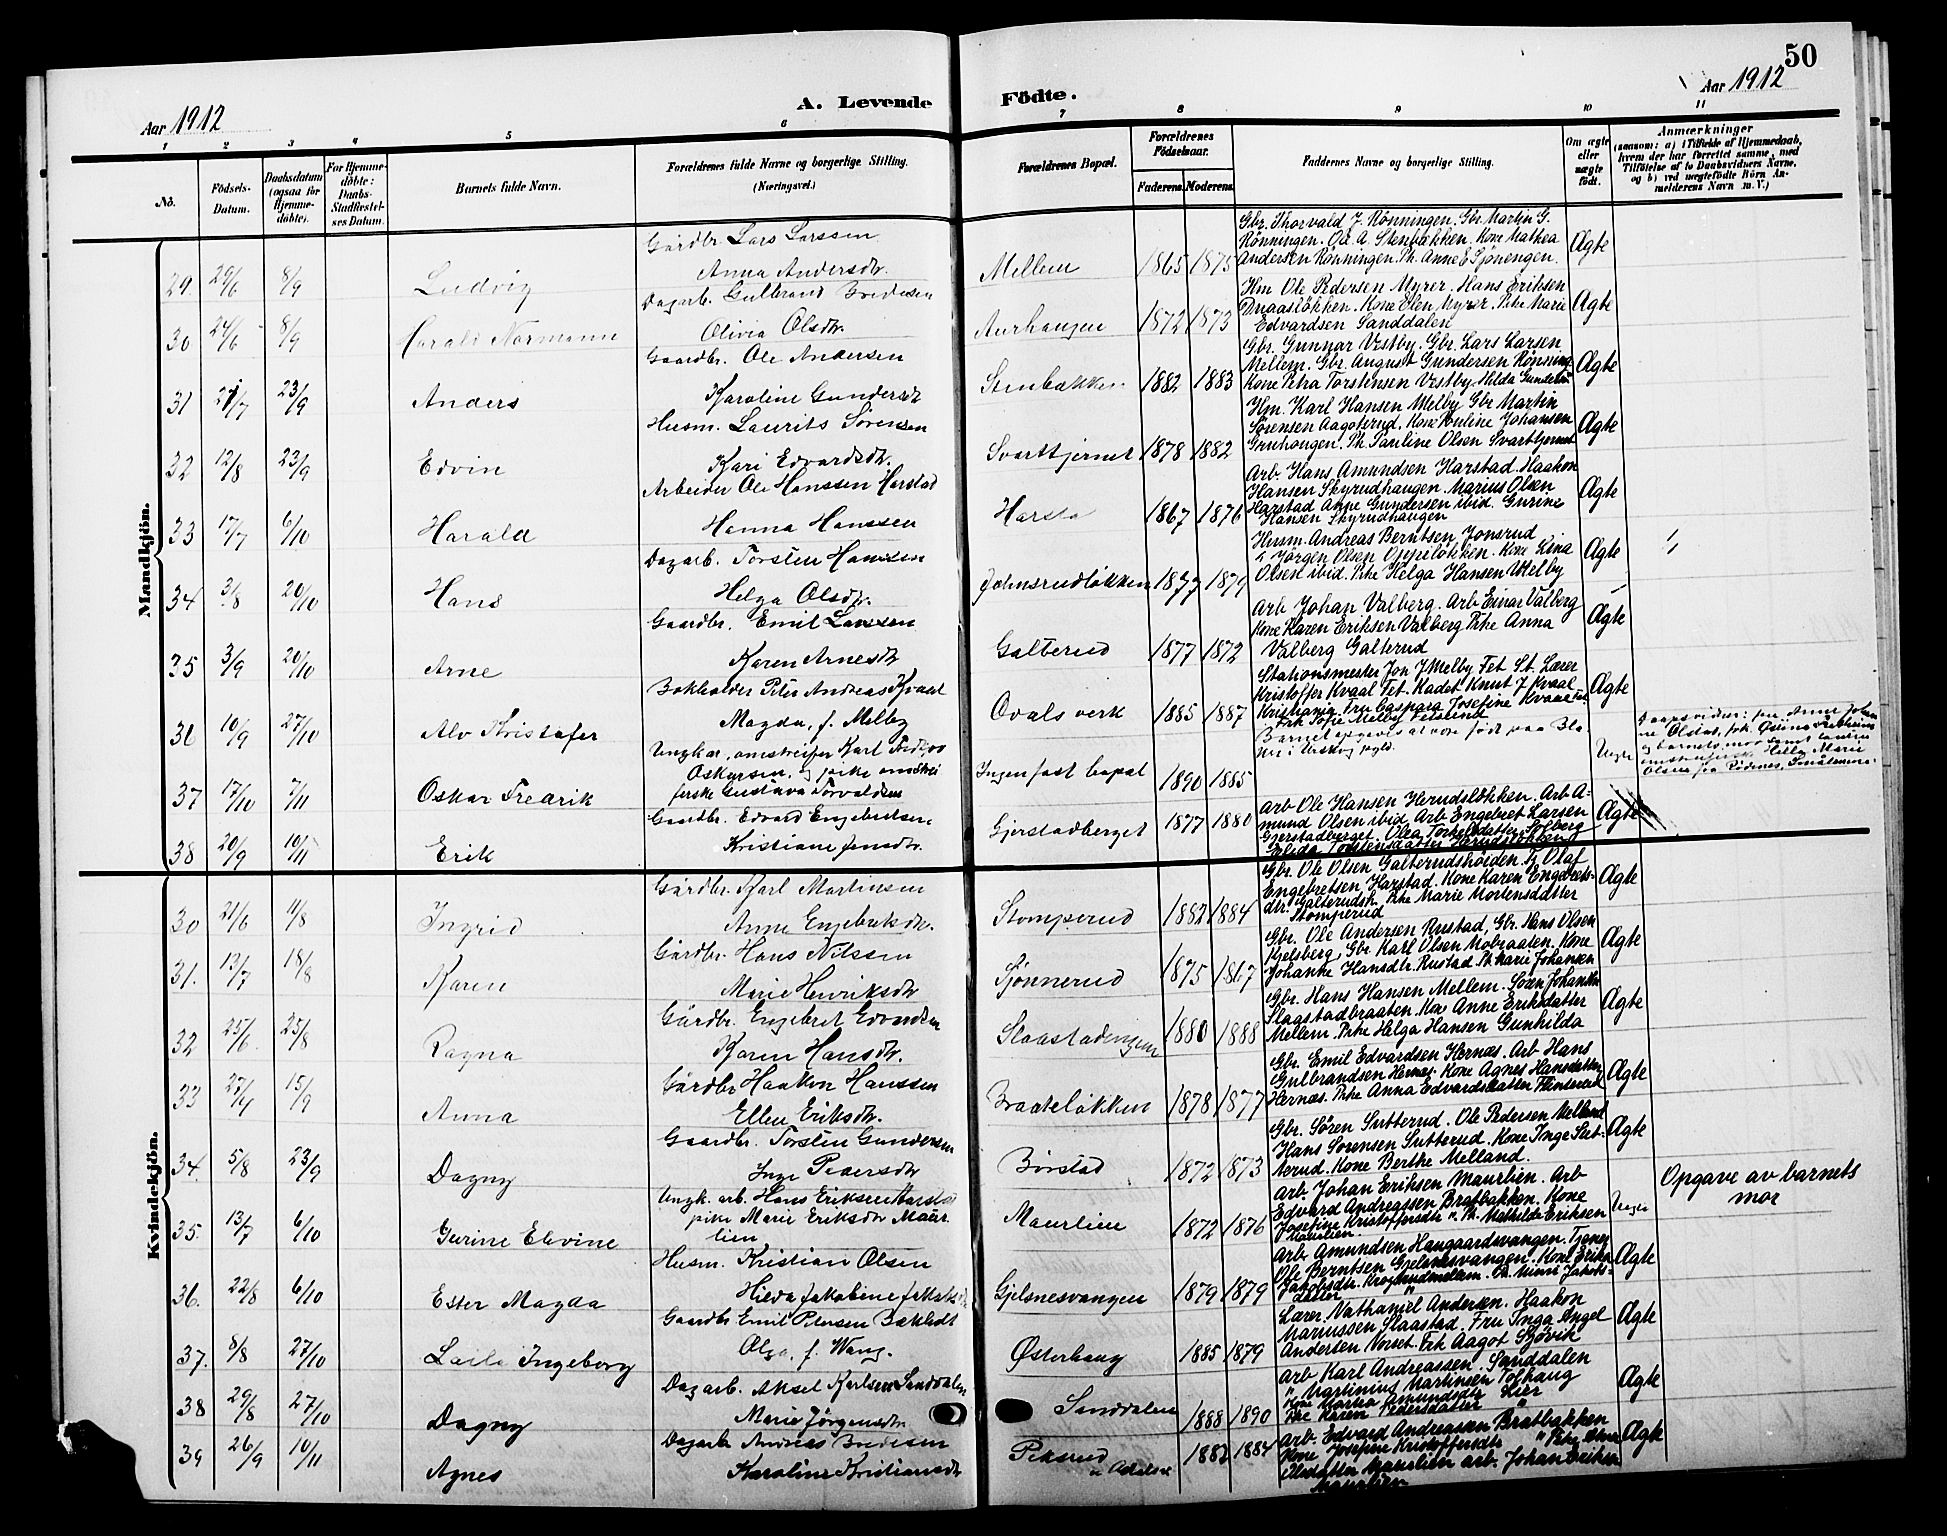 50
Aar 1912
A. Levende Födte.
Aar 1912
1 2 3 4 5 6 7 8 9 10 11
No.
Födsels-Datum.
Daabsdatum (ogsaa for Hjemme-döbte).
For Hjemme-döbte: Daabs-Stadfestel-ses Datum.
Barnets fulde Navn.
Forældrenes fulde Navne og borgerlige Stilling.
(Næringsvei.)
Forældrenes Bopæl.
Forældrenes Födselsaar.
Faderens. Moderens.
Faddernes Navne og borgerlige Stilling.
Om ægte eller uægte födt.
Anmærkninger
(saasom: a) i Tilfælde af Hjemmedaab, hvem der har forrettet samme, med Tilföielse af to Daabsvidners Navne, og b) ved uægtefödte Börn Anmelderens Navn m. V.)
Mandkjön.
29. 29/6 8/9 Ludvig
Gårdbr. Lars Larssen
Anna Andersdtr.
Mellem 1865 1875
Gbr. Thorvald J. Rönningen. Gbr Martin G.
Rönningen. Ole A. Stenbækken. Kone Mathea
Andersen Rönningen. Pk. Anne E Sjönengen.
Ægte
30 24/6 8/9 Harald Normann
Dagarb. Gulbrand Bredesen
Olivia Olsdtr.
Aurhaugen 1872 1873
Hm Ole Pedersen Myrer. Hans Eriksen
Draaslökken. Kone Olen Myrer. Pike Marie
Edvardsen Sanddalen
Ægte
31 21/7 23/9 Anders
Gaardbr. Ole Andersen
Karoline Gundersdtr
Stenbækken 1882 1883
Gbr. Gunnar Vestby. Gbr. Lars Larsen
Mellem. Gbr. August Gundersen Rönning
Kone Petra Torstensen Vestby. Hilda
Ægte
32 12/8 23/9 Edvin
Husm. Laurits Sörensen
Kari Edvardsdtr.
Svarttjernet 1878 1882
Hm. Karl Hansen Melby Gbr Martin
Sörensen Aagoterud. Kone Pauline Johansen
Gruhougen. Pk. Pauline Olsen Svarttjernet
Ægte
33 17/7 6/10 Harald
Arbeider Ole Hanssen Harstad
Hanna Hanssen
Harsta 1867 1876
Arb. Hans Amundsen Harstad. Haakon
Hansen Skyrudhaugen. Marius Olsen
Harstad Anne Gundersen ibid. Gurine
Hansen Skyrudhaugen
Ægte
34 31/8 20/10 Hans
Dagarb. Torsten Hanssen
Helga Olsdtr.
Johnsrudløkken 1877 1879
Husm. Andreas Berntsen Jonsrud
" Jörgen Olsen Oppilökken. Kone Lina
Olsen ibid. Pike Helga Hansen Melby
Ægte
35 3/9 20/10 Arne
Gaardbr. Emil Larssen
Karen Arnesdtr
Galterud 1877 1872
Arb Johan Valberg. Arb Einar Valberg
Kone Karen Eriksen Valberg Pike Anna
Valberg Galterud
Ægte
36 10/9 27/10 Alv Kristofer
Bokholder Peter Andreas Kvaal
Magda, f. Melby
Ovals verk 1885 1887
Stationsmester Jon J Melby Fet St. Lærer
Kristoffer Kvaal Fet. Kadet Knut J Kvaal
Kristiania Fru Caspara Josefine Kvaal Fet
Frk Sofie Melby Fetsund
Ægte
37 17/10 7/11 Oskar Fredrik
Ungkar, omstreifer Karl Fredrik
Oskarsen, og pike omstrei
ferske Gustava Torvaldsen
Ingen fast bopæl 1890 1885
Barnet opgaves at være født paa
Uægte
Daapsvidner: fru Anne
38 20/9 10/11 Erik
Gaardbr. Edvard Engebretsen
Kristiane Jensdtr.
Gjerstadberget 1877 1880
Arb Ole Hansen Herudslökken. Arb A-
mund Olsen ibid Arb Engebret Larsen
Gjerstadberget. Olea Torkelsdatter Solberg
Ægte
Kvindekjön.
30 21/6 11/8 Ingrid
Gårdbr. Karl Martinsen
Anne Engebretsdtr.
Stomperud 1882 1884
Gbr. Ole Olsen Galterudshöiden. " Olaf
Engebretsen Harstad. Kone Karen Engebrets-
dtr. Galterudsh. Pike Marie Mortensdatter
Stomperud
Ægte
31. 13/7 18/8 Karen
Gårdbr. Hans Nilssen
Marie Henriksdtr
Sjønnerud 1875 1867
Gbr. Ole Andersen Rustad, Gbr. Hans Olsen
Kjelsberg, Gbr. Karl Olsen Mobraaten. Kone
Johanne Hansdtr. Rustad. Pk. Marie Johansen
Ægte
32 25/6 25/8 Ragna
Gårdbr. Engebret Edvardsen
Karen Hansdtr.
Slaastadengen 1880 1888
Gbr. Hans Hansen Mellem. Sören Johansen
Slagstadbraaten. Kone Anne Eriksdatter
Mellem. Pike Helga Hansen Gunhilda
Ægte
33 27/4 15/9 Anna
Gårdbr Haakon Hanssen
Ellen Eriksdtr.
Braateløkken 1878 1877
Gbr. Emil Edvardsen Hernæs. Arb Hans
Gulbrandsen Hernæs. Kone Agnes Hansdatter
Hernæs. Pike Anna Edvardsdatter
Ægte
34. 5/8 23/9 Dagny
Gaardbr. Torsten Gundersen
Inge Pedersdtr
Børstad 1872 1873
Gbr. Sören Sutterud. Ole Pedersen Melland
Hans Sorensen Sutterud. Kone Inge Sut-
terud. Kone Berthe Melland.
Ægte
35. 13/7 6/10 Gurine Elevine
Ungk. arb. Hans Eriksen Harstad
pike Marie Eriksdtr Maur
lien
Maurlien 1872 1876
Arb. Johan Eriksen Maurlien. Arb
Edvard Andreassen Bratbakken. Kone
Josefine Kristoffersdtr ". Pk. Mathilde Eriksen
Maurlien.
Uægte
Opgave av barnets
mor
36. 22/8 6/10 Ester Magda
Husm. Kristian Olsen
Hilda Jakobine Jakobsdtr
Gjelsnesvangen 1879 1879
Arb Amundsen Haugaardsvangen. Tjener
Ole Berntsen Gjelsnesvangen. Kone Erika
Jakobsdtr. Krogsrudmellem. Pk. Mimi Jakobs-
datter "
Ægte
37. 8/8 27/10 Laila Ingeborg
Gaardbr Emil Petersen Bakstedt
Olga, f. Wang.
Østerhaug 1885 1879
Lærer Nathaniel Andersen. Haakon
Mariussen Slaastad. Fru Inga Angel
Andersen Vorset. Frk Aagot Gjövik
Ægte
38 29/8 27/10 Dagny
Dagarb. Aksel Karlsen Sanddalen
Marie Jörgensdtr.
Sanddalen 1888 1890
Arb Karl Andreassen. Sanddalen
" Martinius Martinsen Tolhaug
Kone Martha Amundsdtr Lier
Pike Karen Pedersdatter "
Ægte
39 26/9 10/11 Agnes
Dagarb Andreas Bredesen
Karoline Kristiansdtr
Peksrud 1882 1884
Arb. Edvard Andreassen Bratbakken
Kone Josefine Kristoffersdtr " Pike Olava
Olsdatter Maurlien arb. Johan Eriksen
Maurlien
Ægte